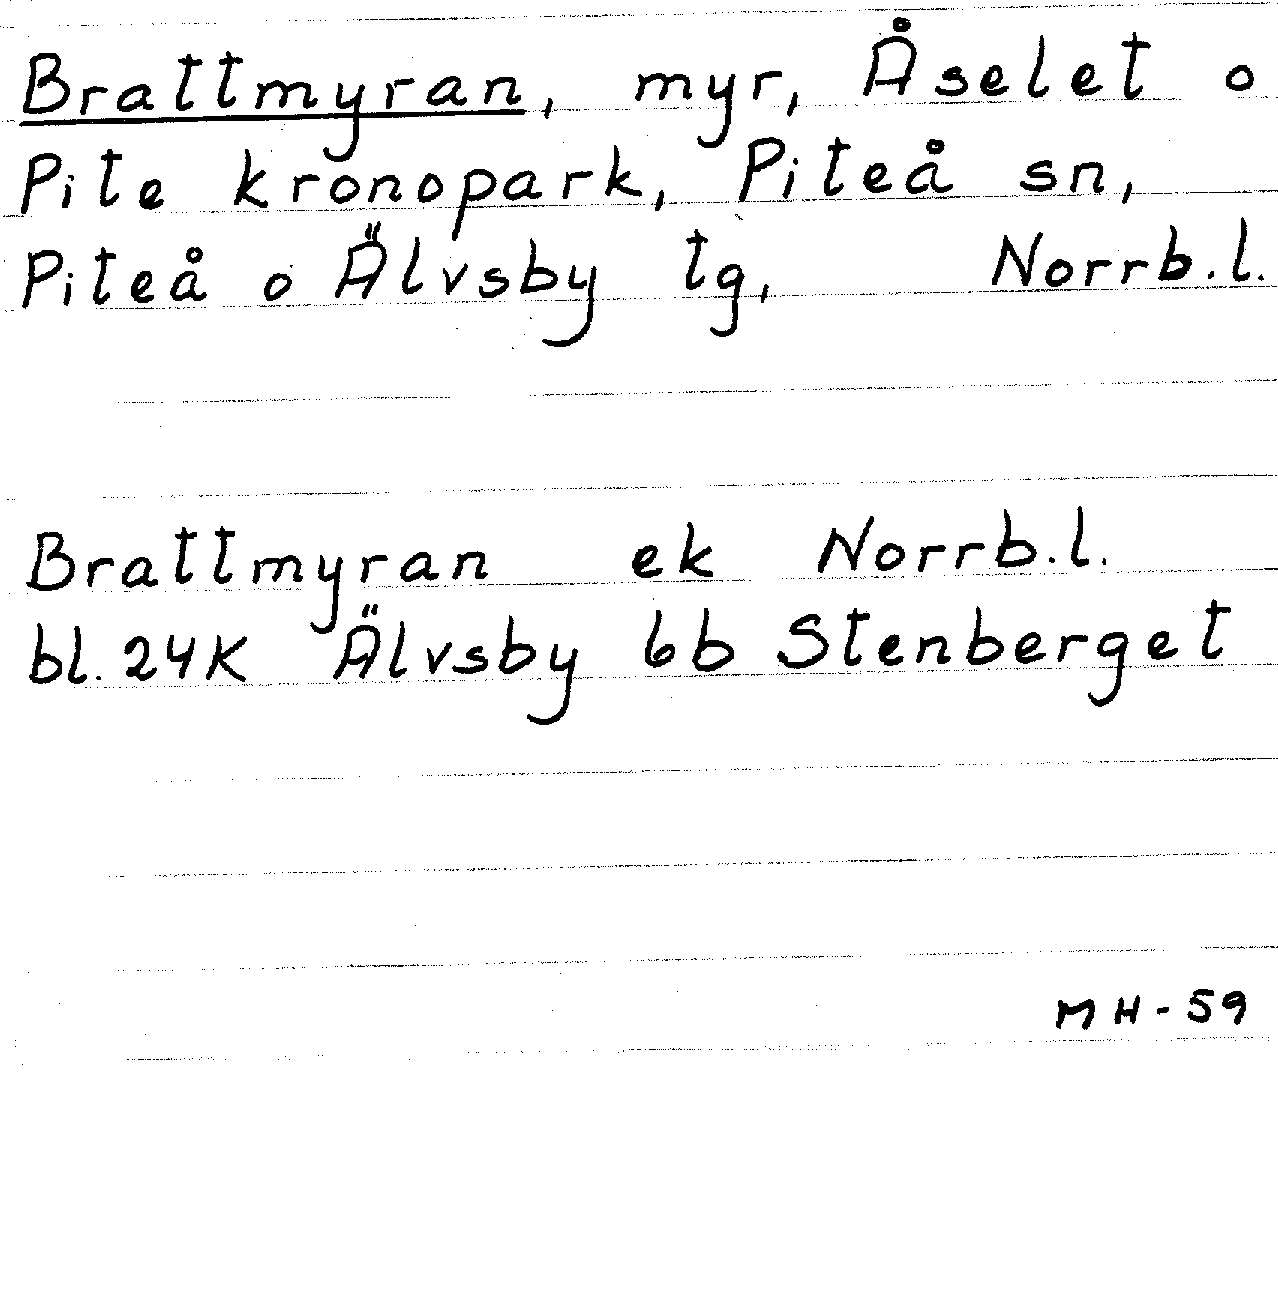 Brattmyran, myr, Åselet o
Pite kronopark, Piteå sn,
Piteå o Älvsby tg, Norrb.l.
Brattmyran ek Norrb.l.
bl. 24K Älvsby 6b Stenberget
MH-59